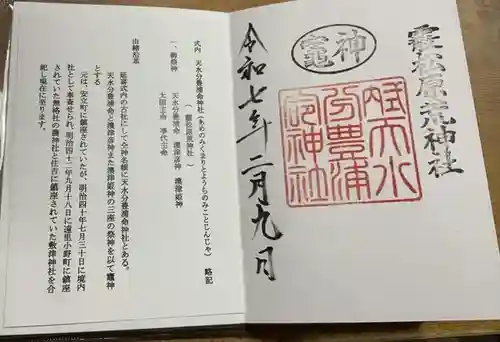 霰松原荒神社
神竈
式内天水
分豊浦
命神社
令和七年二月九日
式内 天水分豊浦命神社(あめのみくまりとようらのみことじんじゃ) 略記
( 霰松原荒神社 )
一、御祭神
天水分豊浦命 澳津彦神 澳津姫神
大国主命 事代主命
由緒沿革
延喜式内の古社にして全神名帳に天水分豊浦命神社とある。
天水分豊浦命と澳津彦神また澳津姫神の三座の祭神を以て竈神
とする
元は、安立町に鎮座されていたが、明治四十年七月三十日に境内
社として奉斎せられ、明治四十二年九月十八日に遠里小野町に鎮座
されていた無格社の農神社と住吉に鎮座されていた敷津神社を合
祀し現在に至ります。